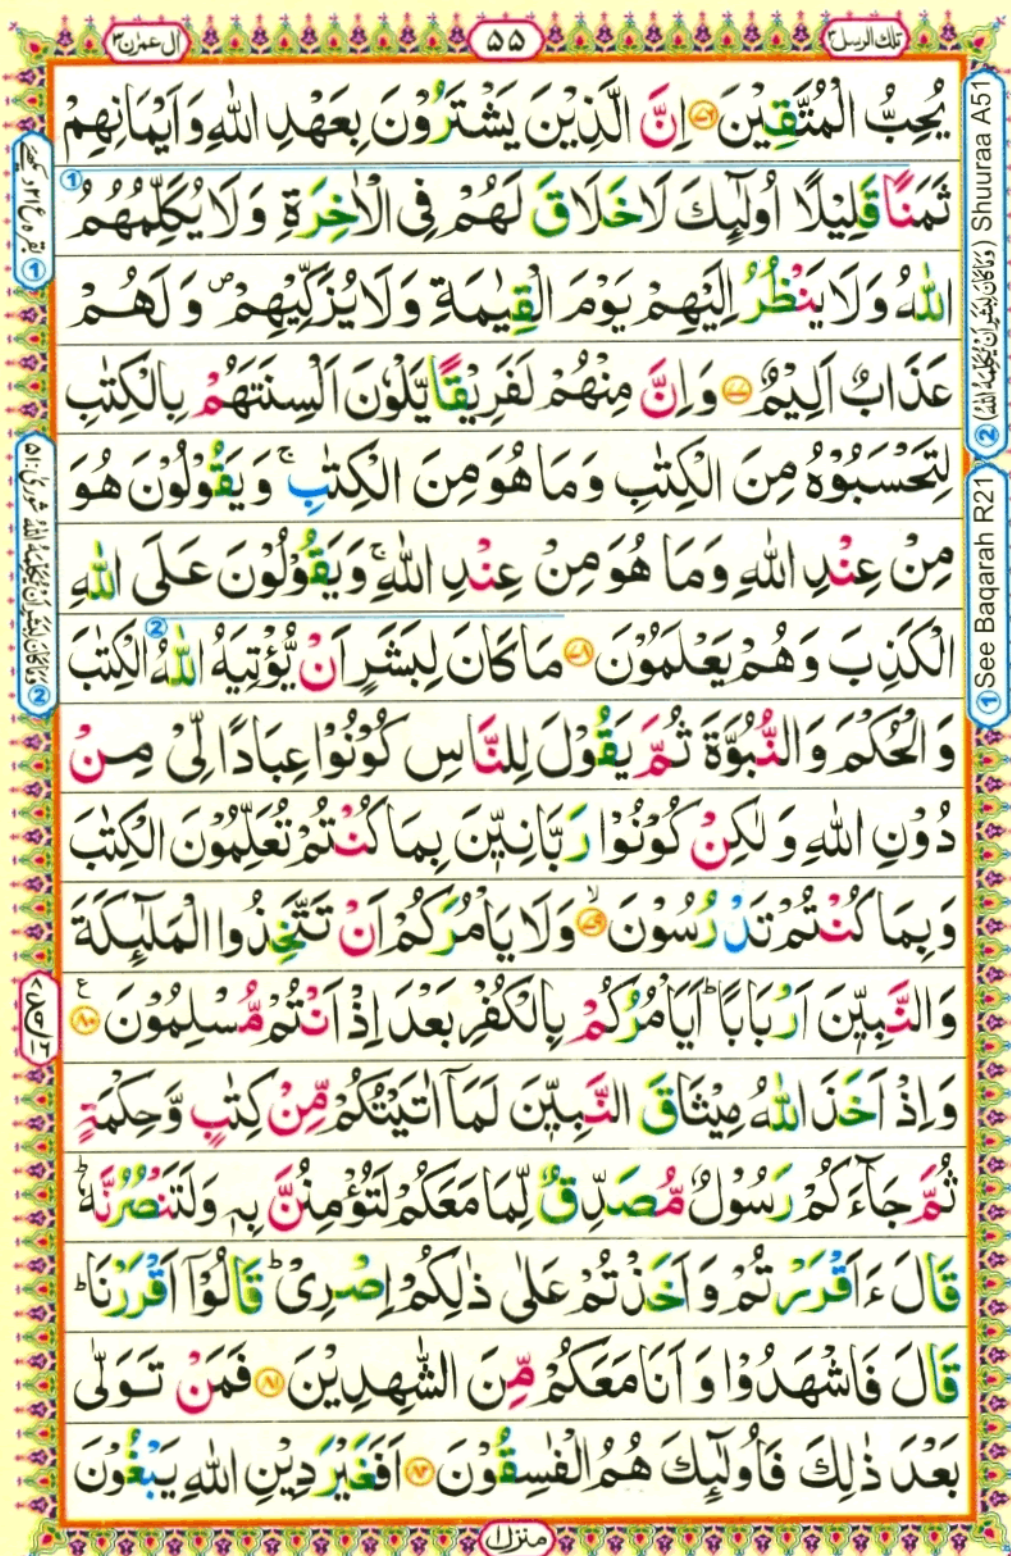 تلك الرسل ٣
۵۵
اٰل عمرٰن ٣
يُحِبُّ الْمُتَّقِيْنَ ﴿۷۶﴾ اِنَّ الَّذِيْنَ يَشْتَرُوْنَ بِعَهْدِ اللّٰهِ وَاَيْمَانِهِمْ
ثَمَنًا قَلِيْلًا اُولٰٓئِكَ لَا خَلَاقَ لَهُمْ فِى الْاٰخِرَةِ وَلَا يُكَلِّمُهُمُ
اللّٰهُ وَلَا يَنْظُرُ اِلَيْهِمْ يَوْمَ الْقِيٰمَةِ وَلَا يُزَكِّيْهِمْ ۖ وَلَهُمْ
عَذَابٌ اَلِيْمٌ ﴿۷۷﴾ وَاِنَّ مِنْهُمْ لَفَرِيْقًا يَّلْوٗنَ اَلْسِنَتَهُمْ بِالْكِتٰبِ
لِتَحْسَبُوْهُ مِنَ الْكِتٰبِ وَمَا هُوَ مِنَ الْكِتٰبِ ۚ وَيَقُوْلُوْنَ هُوَ
مِنْ عِنْدِ اللّٰهِ وَمَا هُوَ مِنْ عِنْدِ اللّٰهِ ۚ وَيَقُوْلُوْنَ عَلَى اللّٰهِ
الْكَذِبَ وَهُمْ يَعْلَمُوْنَ ﴿۷۸﴾ مَا كَانَ لِبَشَرٍ اَنْ يُّؤْتِيَهُ اللّٰهُ الْكِتٰبَ
وَالْحُكْمَ وَالنُّبُوَّةَ ثُمَّ يَقُوْلَ لِلنَّاسِ كُوْنُوْا عِبَادًا لِّىْ مِنْ
دُوْنِ اللّٰهِ وَلٰكِنْ كُوْنُوْا رَبّٰنِيّٖنَ بِمَا كُنْتُمْ تُعَلِّمُوْنَ الْكِتٰبَ
وَبِمَا كُنْتُمْ تَدْرُسُوْنَ ۙ﴿۷۹﴾ وَلَا يَاْمُرَكُمْ اَنْ تَتَّخِذُوا الْمَلٰٓئِكَةَ
وَالنَّبِيّٖنَ اَرْبَابًا ؕ اَيَاْمُرُكُمْ بِالْكُفْرِ بَعْدَ اِذْ اَنْتُمْ مُّسْلِمُوْنَ ﴿۸۰﴾ ع
وَاِذْ اَخَذَ اللّٰهُ مِيْثَاقَ النَّبِيّٖنَ لَمَاۤ اٰتَيْتُكُمْ مِّنْ كِتٰبٍ وَّحِكْمَةٍ
ثُمَّ جَآءَكُمْ رَسُوْلٌ مُّصَدِّقٌ لِّمَا مَعَكُمْ لَتُؤْمِنُنَّ بِهٖ وَلَتَنْصُرُنَّهٗ ؕ
قَالَ ءَاَقْرَرْتُمْ وَاَخَذْتُمْ عَلٰى ذٰلِكُمْ اِصْرِىْ ؕ قَالُوْۤا اَقْرَرْنَا ؕ
قَالَ فَاشْهَدُوْا وَاَنَا مَعَكُمْ مِّنَ الشّٰهِدِيْنَ ﴿۸۱﴾ فَمَنْ تَوَلّٰى
بَعْدَ ذٰلِكَ فَاُولٰٓئِكَ هُمُ الْفٰسِقُوْنَ ﴿۸۲﴾ اَفَغَيْرَ دِيْنِ اللّٰهِ يَبْغُوْنَ
منزل ١
② (وَمَا كَانَ لِبَشَرٍ اَنْ يُّكَلِّمَهُ اللّٰهُ) Shuuraa A51
① See Baqarah R21
① بقره ع ۲۱ دیکھیے
② وَمَا كَانَ لِبَشَرٍ اَنْ يُّكَلِّمَهُ اللّٰهُ شورىٰ: ۵۱